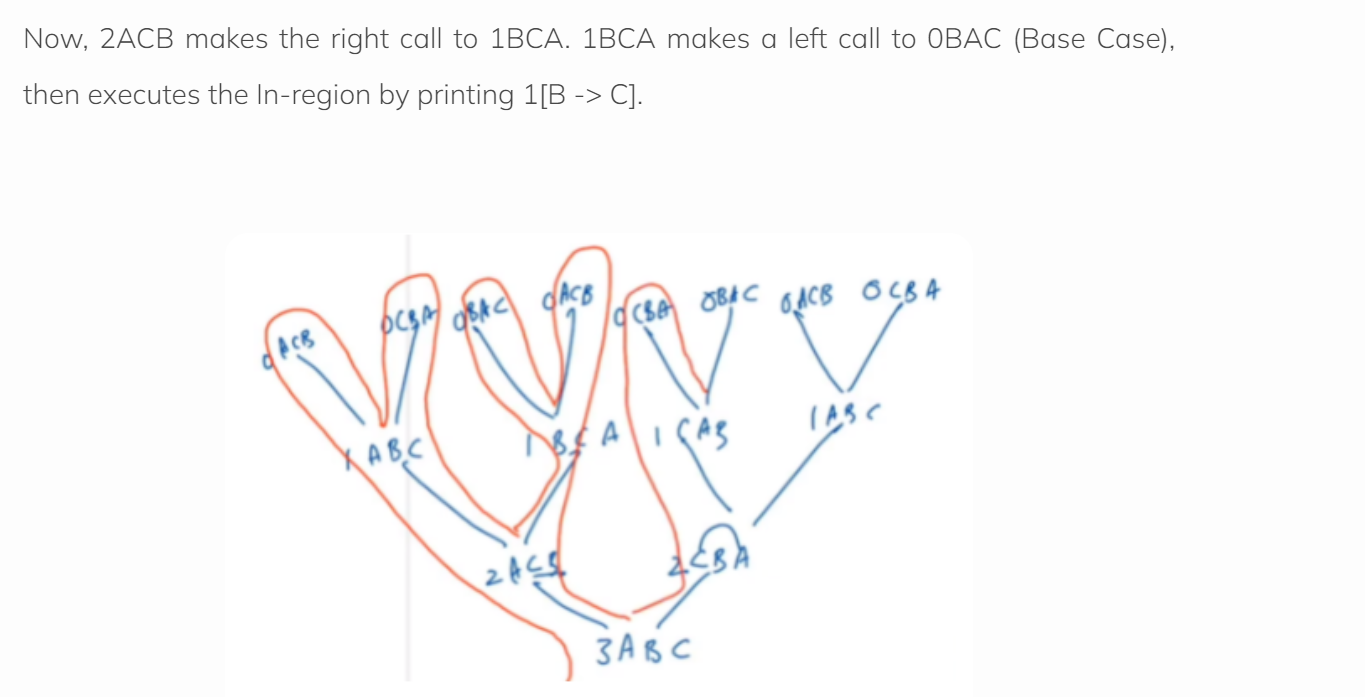 Now, 2ACB makes the right call to 1BCA. 1BCA makes a left call to 0BAC (Base Case),
then executes the In-region by printing 1[B -> C].
0ACB 0CBA 0BAC 0ACB 0CBA 0BAC 0ACB 0CBA
1ABC 1BCA 1CAB 1ABC
2ACB 2CBA
3ABC